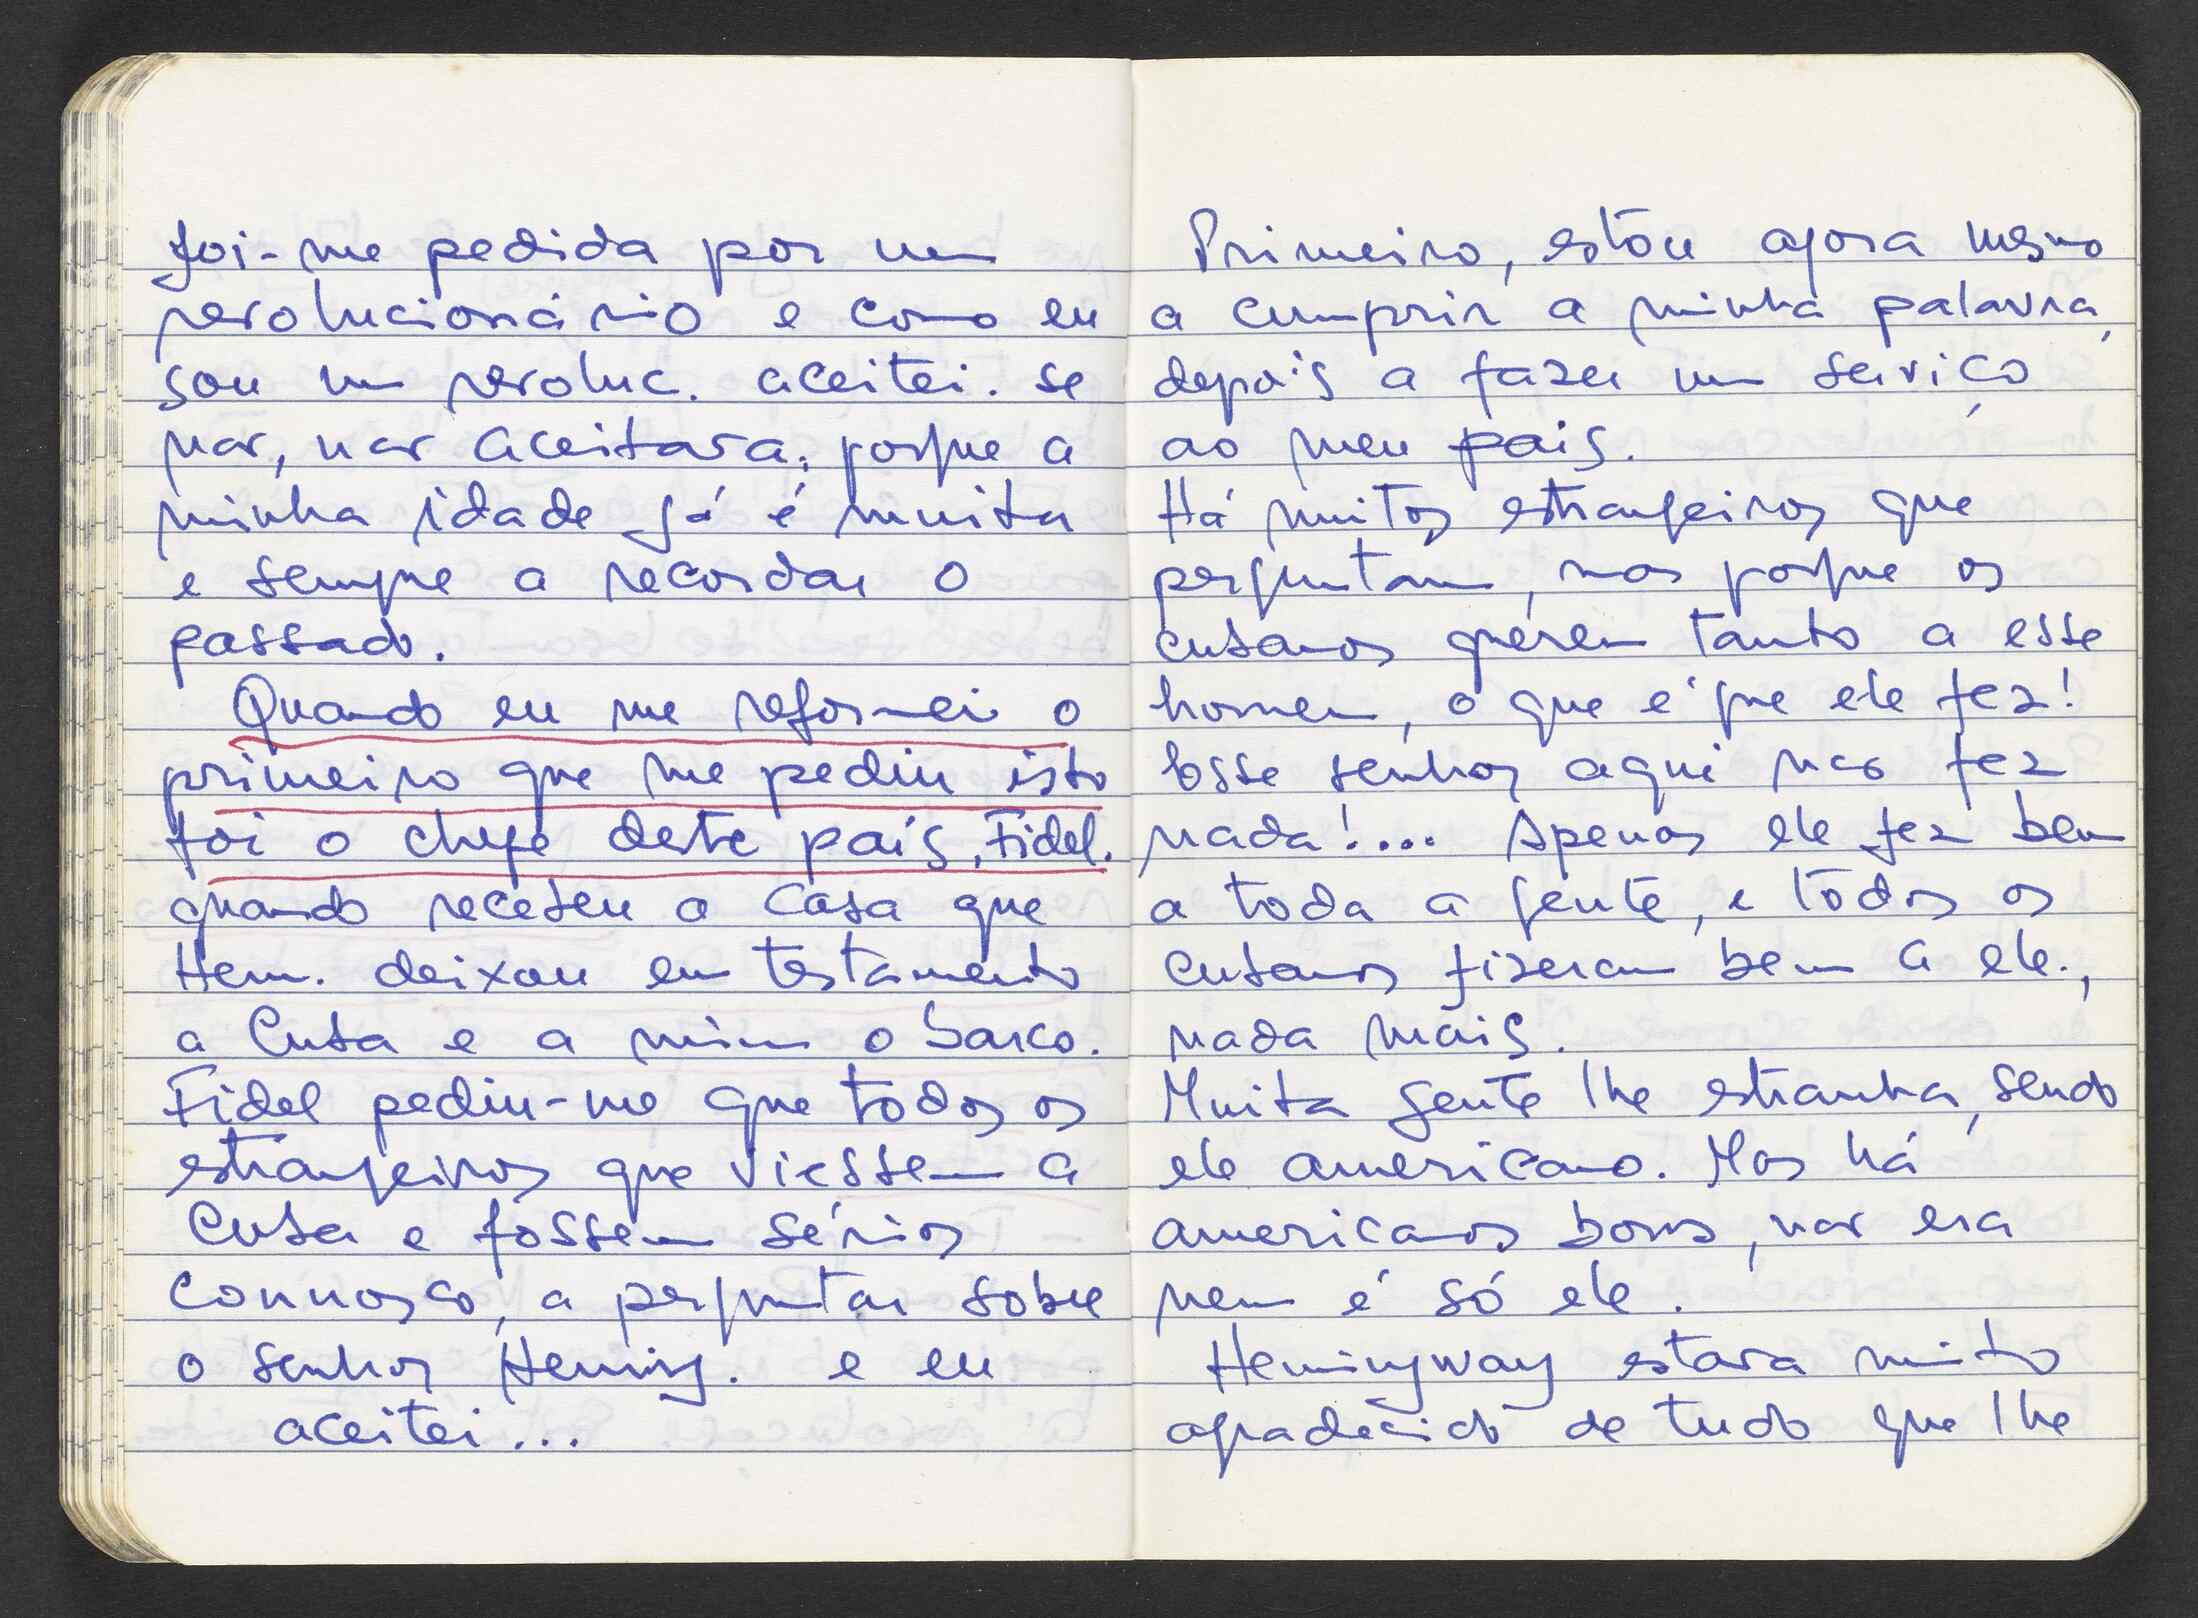 foi-me pedida por um
revolucionário e como eu
sou um revoluc. aceitei. se
não, não aceitava, porque a
minha idade já é muita
e sempre a recordar o
passado.
Quando eu me reformei o
primeiro que me pediu isto
foi o chefe deste país, Fidel.
quando recebeu a casa que
Hem. deixou em testamento
a Cuba e a mim o barco.
Fidel pediu-me que todos os
estrangeiros que viessem a
Cuba e fossem sérios
connosco, a perguntar sobre
o senhor Heming. e eu
aceitei...
Primeiro, estou agora mesmo
a cumprir a minha palavra,
depois a fazer um serviço
ao meu país.
Há muitos estrangeiros que
perguntam, mas porque os
cubanos querem tanto a esse
homem, o que é que ele fez!
Esse senhor aqui não fez
nada!... Apenas ele fez bem
a toda a gente, e todos os
cubanos fizeram bem a ele.,
nada mais.
Muita gente lhe estranha, sendo
ele americano. Mas há
americanos bons, não era
nem é só ele.
Hemingway estava muito
agradecido de tudo que lhe